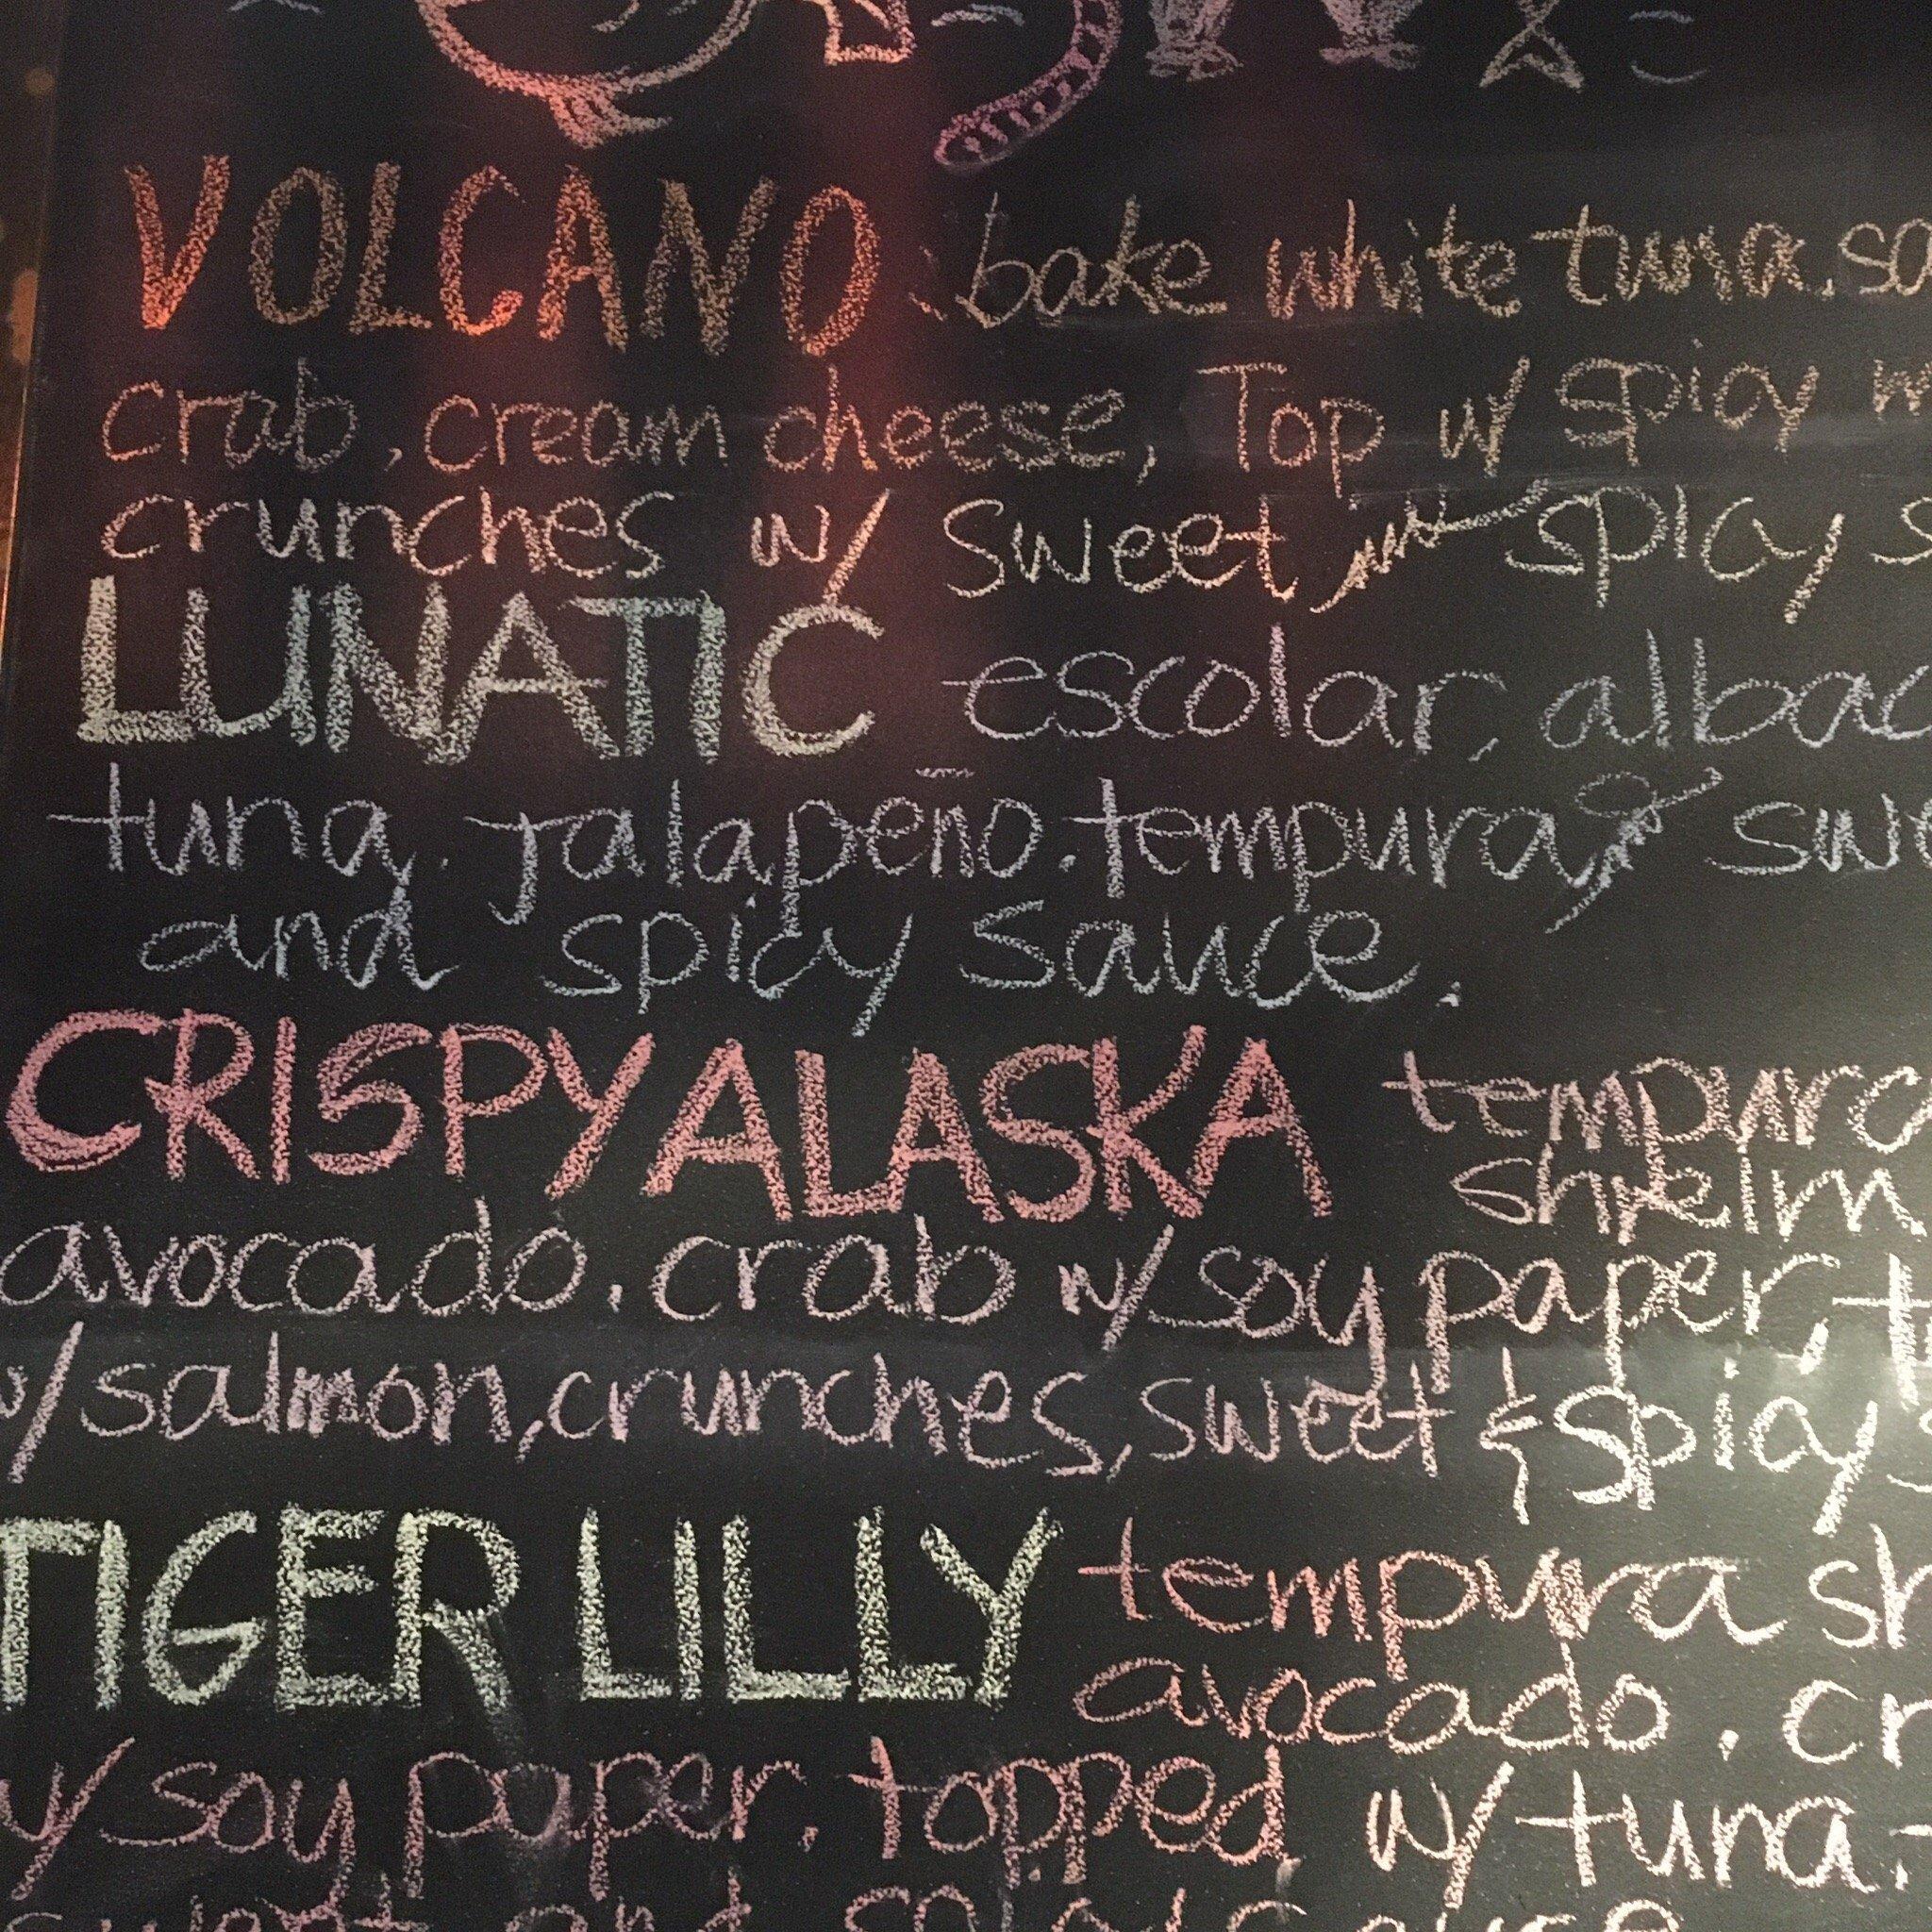 VOLCANO bake white tuna. sa
crab, cream cheese, Top w/ spicy m
crunches w/ sweet, spicy s
LUNATIC escolar, albac
tuna. jalapeño. tempura, & swe
and spicy sauce.
CRISPY ALASKA tempura
avocado. crab w/soy paper, t
w/salmon, crunches, sweet & spicy s
TIGER LILLY tempura sh
avocado. cr
w/ soy paper, topped w/ tuna.
sweet and spicy sauce